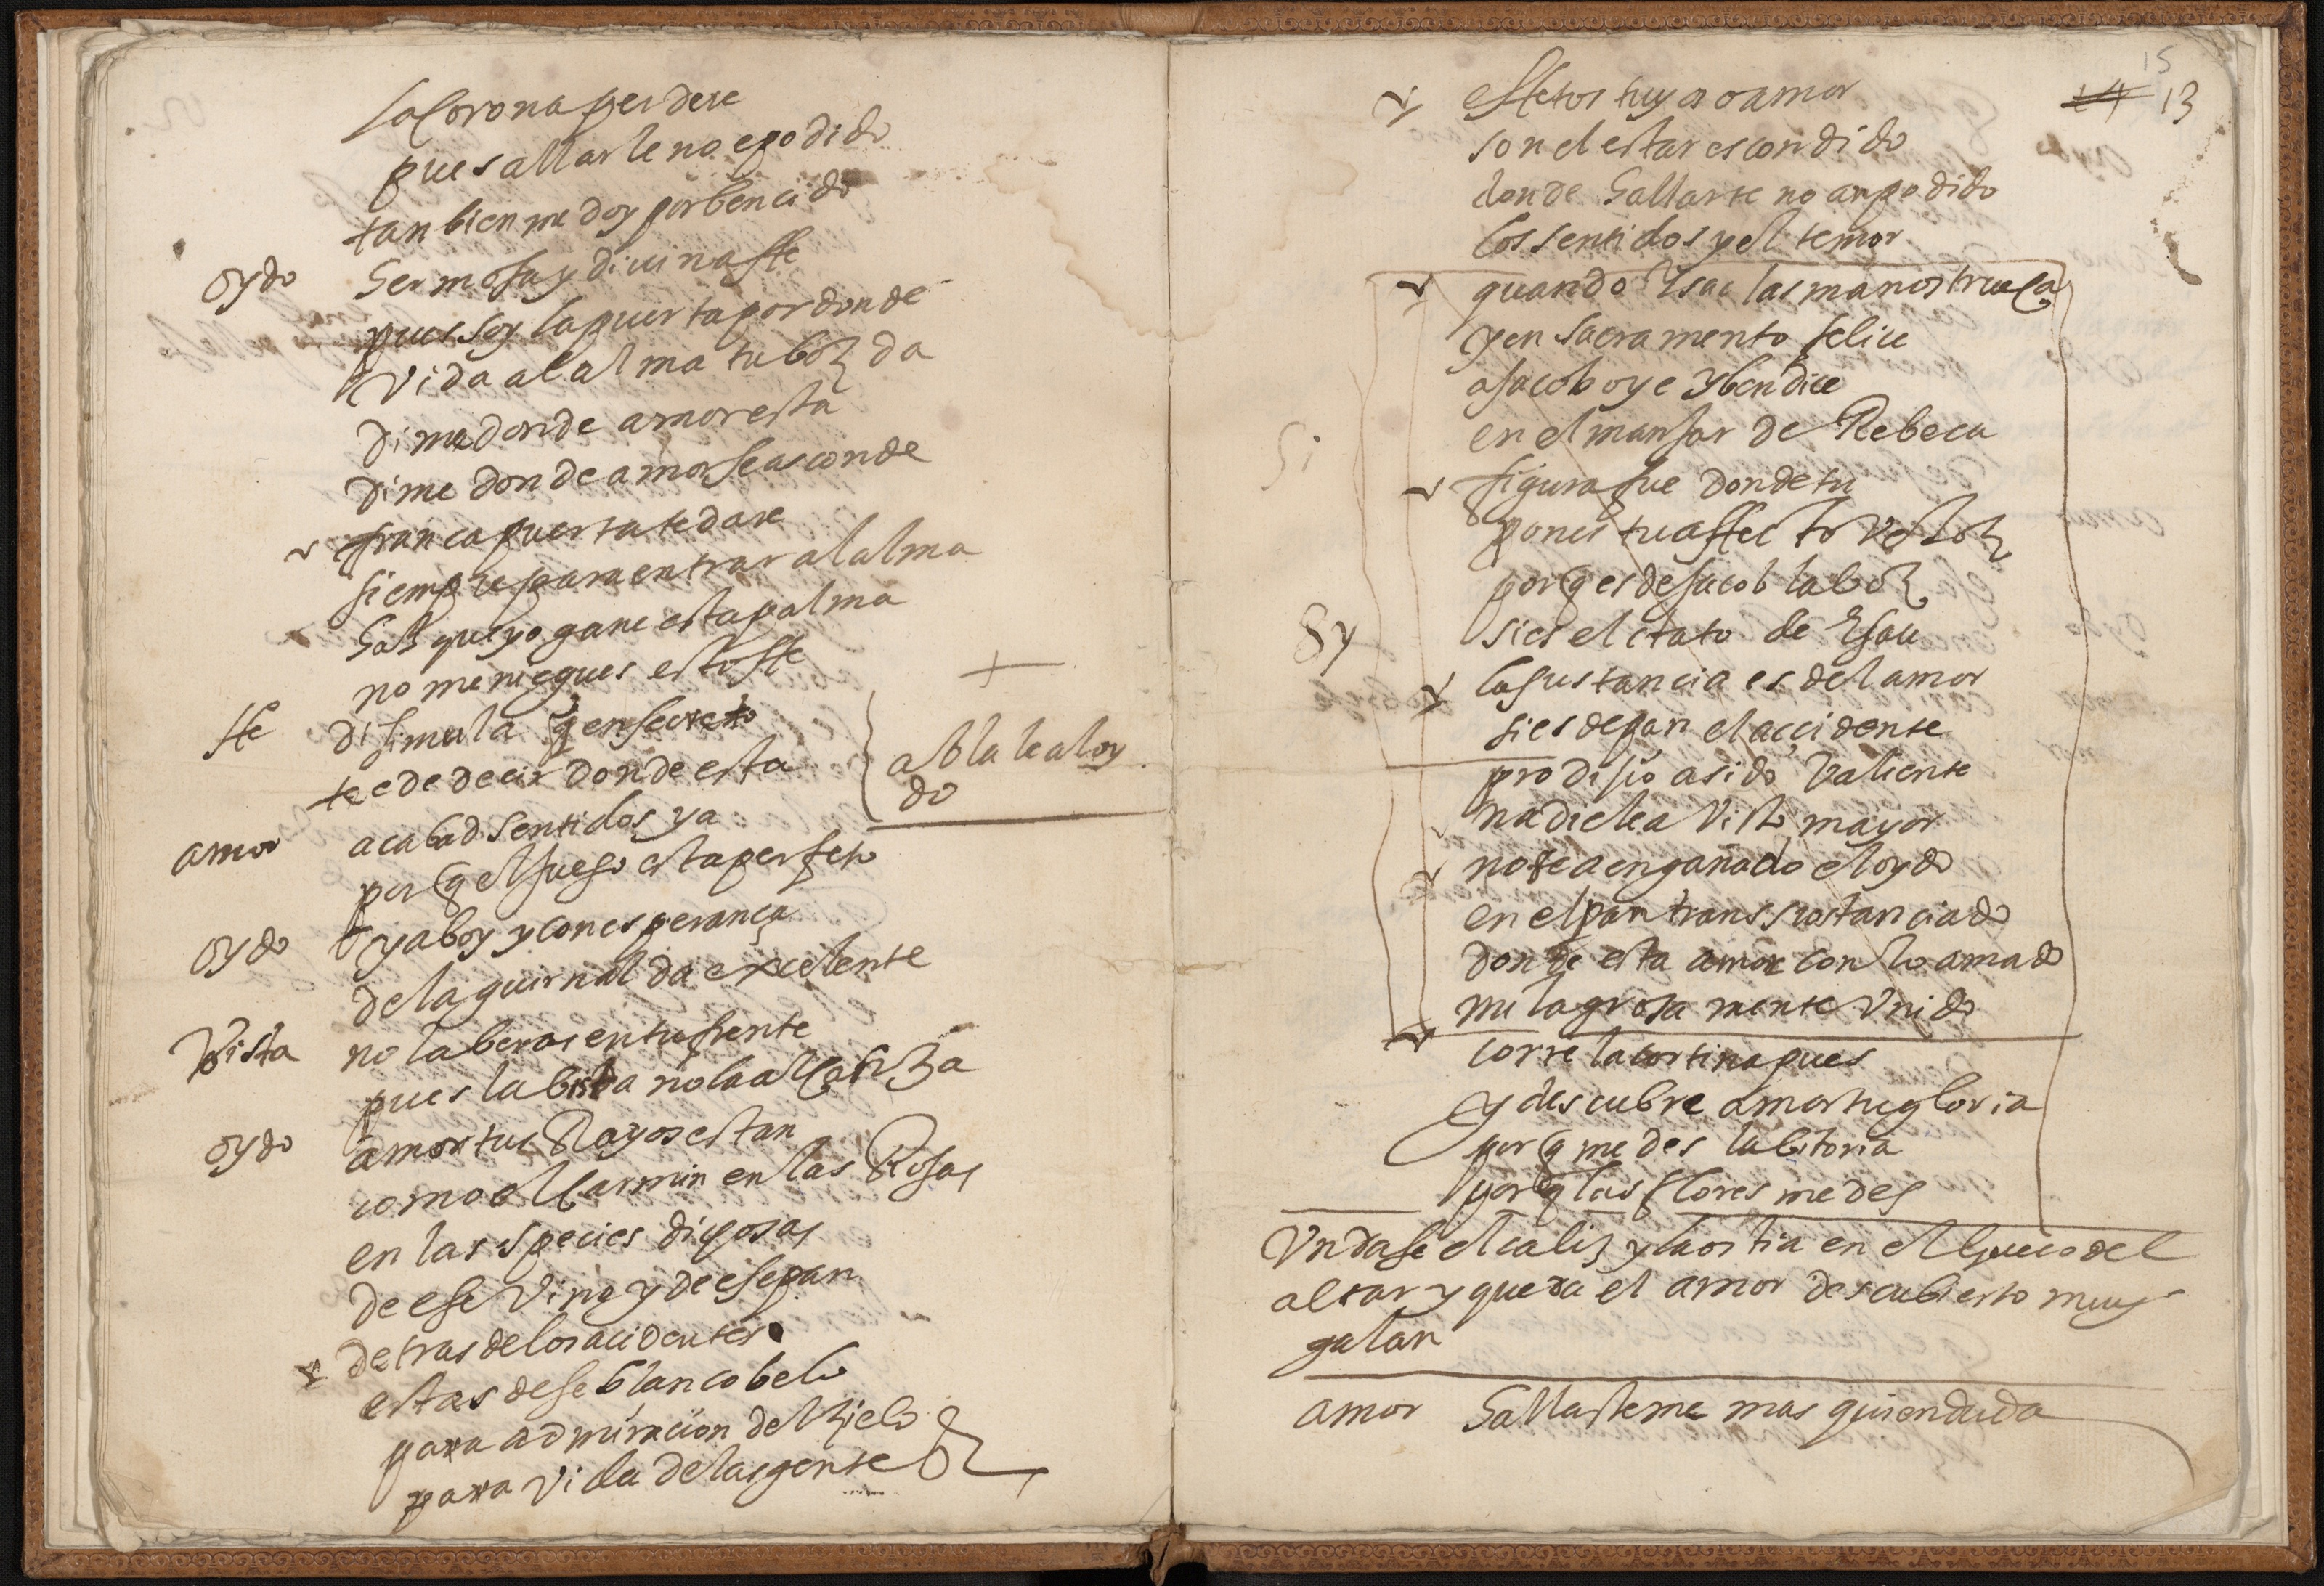 la Corona perdere
pues allarle no e podido
tan bien me doy por bencido
oydo hermosa y divina ffe
pues soy la puerta por donde
Vida al alma tu boz da
dime donde amor esta
dime donde amor se asconde
franca puerta te dare
siempre para entrar al alma
haz que yo gane esta palma
no me niegues esto ffe
ffe disimula q en secreto
te e de decir donde esta
abla le al oy
do
amor acabad sentidos ya
por q el juego esta perfeto
oydo ya boy y con esperança
de la guirnalda excelente
Vista no la beras en tu frente
pues la bista no la alcanza
oydo amor tus Rayos estan
como el carmin en las Rosas
en las species dichosas
de ese Vino y de ese pan
detras de los acidentes
estas dese blanco belo
para admiracion del zielo
para Vida de las gente
15
14 13
effetos tuyos o amor
son el estar escondido
donde hallarte no an podido
los sentidos y el temor
quando Ysac las manos trueca
y en sacramento felice
a Jacob oye y bendice
en el manjar de Rebeca
si
figura fue donde tu
pones tu affecto Veloz
por q es de Jacob la boz
Sy si es el tato de Esau
la sustancia es del amor
si es de pan el accidente
prodijio a sido Valiente
nadie le a Visto mayor
no se a engañado el oydo
en el pan transsustanciado
donde esta amor con lo amado
milagrosa mente Vnido
corre la cortina pues
y descubre amor tu gloria
por q me des la bitoria
por q las flores me des
Vndase el caliz y la ostia en el hueco del
altar y queda el amor descubierto muy
galan
amor hallasteme mas quien duda